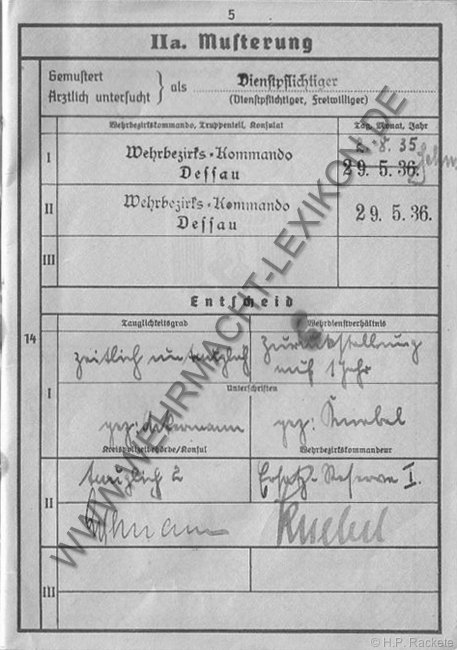 5
IIa. Musterung
Gemustert
Ärztlich untersucht } als Dienstpflichtiger
(Dienstpflichtiger, Freiwilliger)
Wehrbezirkskommando, Truppenteil, Konsulat Tag, Monat, Jahr
8. 35
I Wehrbezirks-Kommando 29. 5. 36.
Dessau
II Wehrbezirks-Kommando 29. 5. 36.
Dessau
III
Entscheid
14
Tauglichkeitsgrad Wehrdienstverhältnis
zeitlich untauglich Zurückstellung
auf 1 Jahr
I
Unterschriften
gez: Ackermann gez: Knebel
Kreispolizeibehörde/Konsul Wehrbezirkskommandeur
tauglich 2 Ersatz-Reserve I.
II
Knebel
III
WWW.WEHRMACHT-LEXIKON.DE
© H.P. Rackete